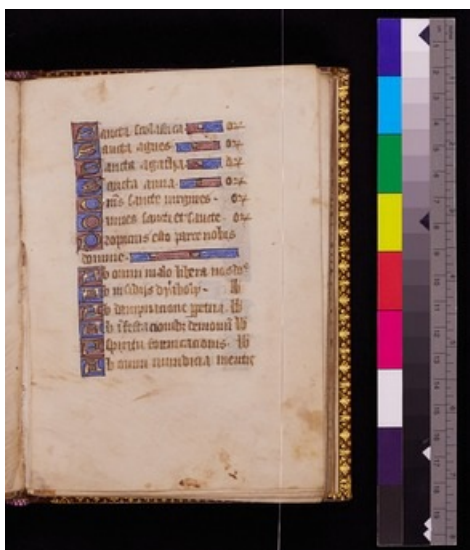 Sancta scolastica or
Sancta agnes or
Sancta agatha or
Sancta anna or
Om̅s sancte uirgines or
Omnes sancti et sancte or
Propicius esto parce nobis
domine
Ab omni malo libera nos do
Ab insidiis dyaboly lb
A dampnatione petua lb
Ab ifestacionibz demonū lb
A spiritu fornicacionis lb
Ab omni inmundicia mentis